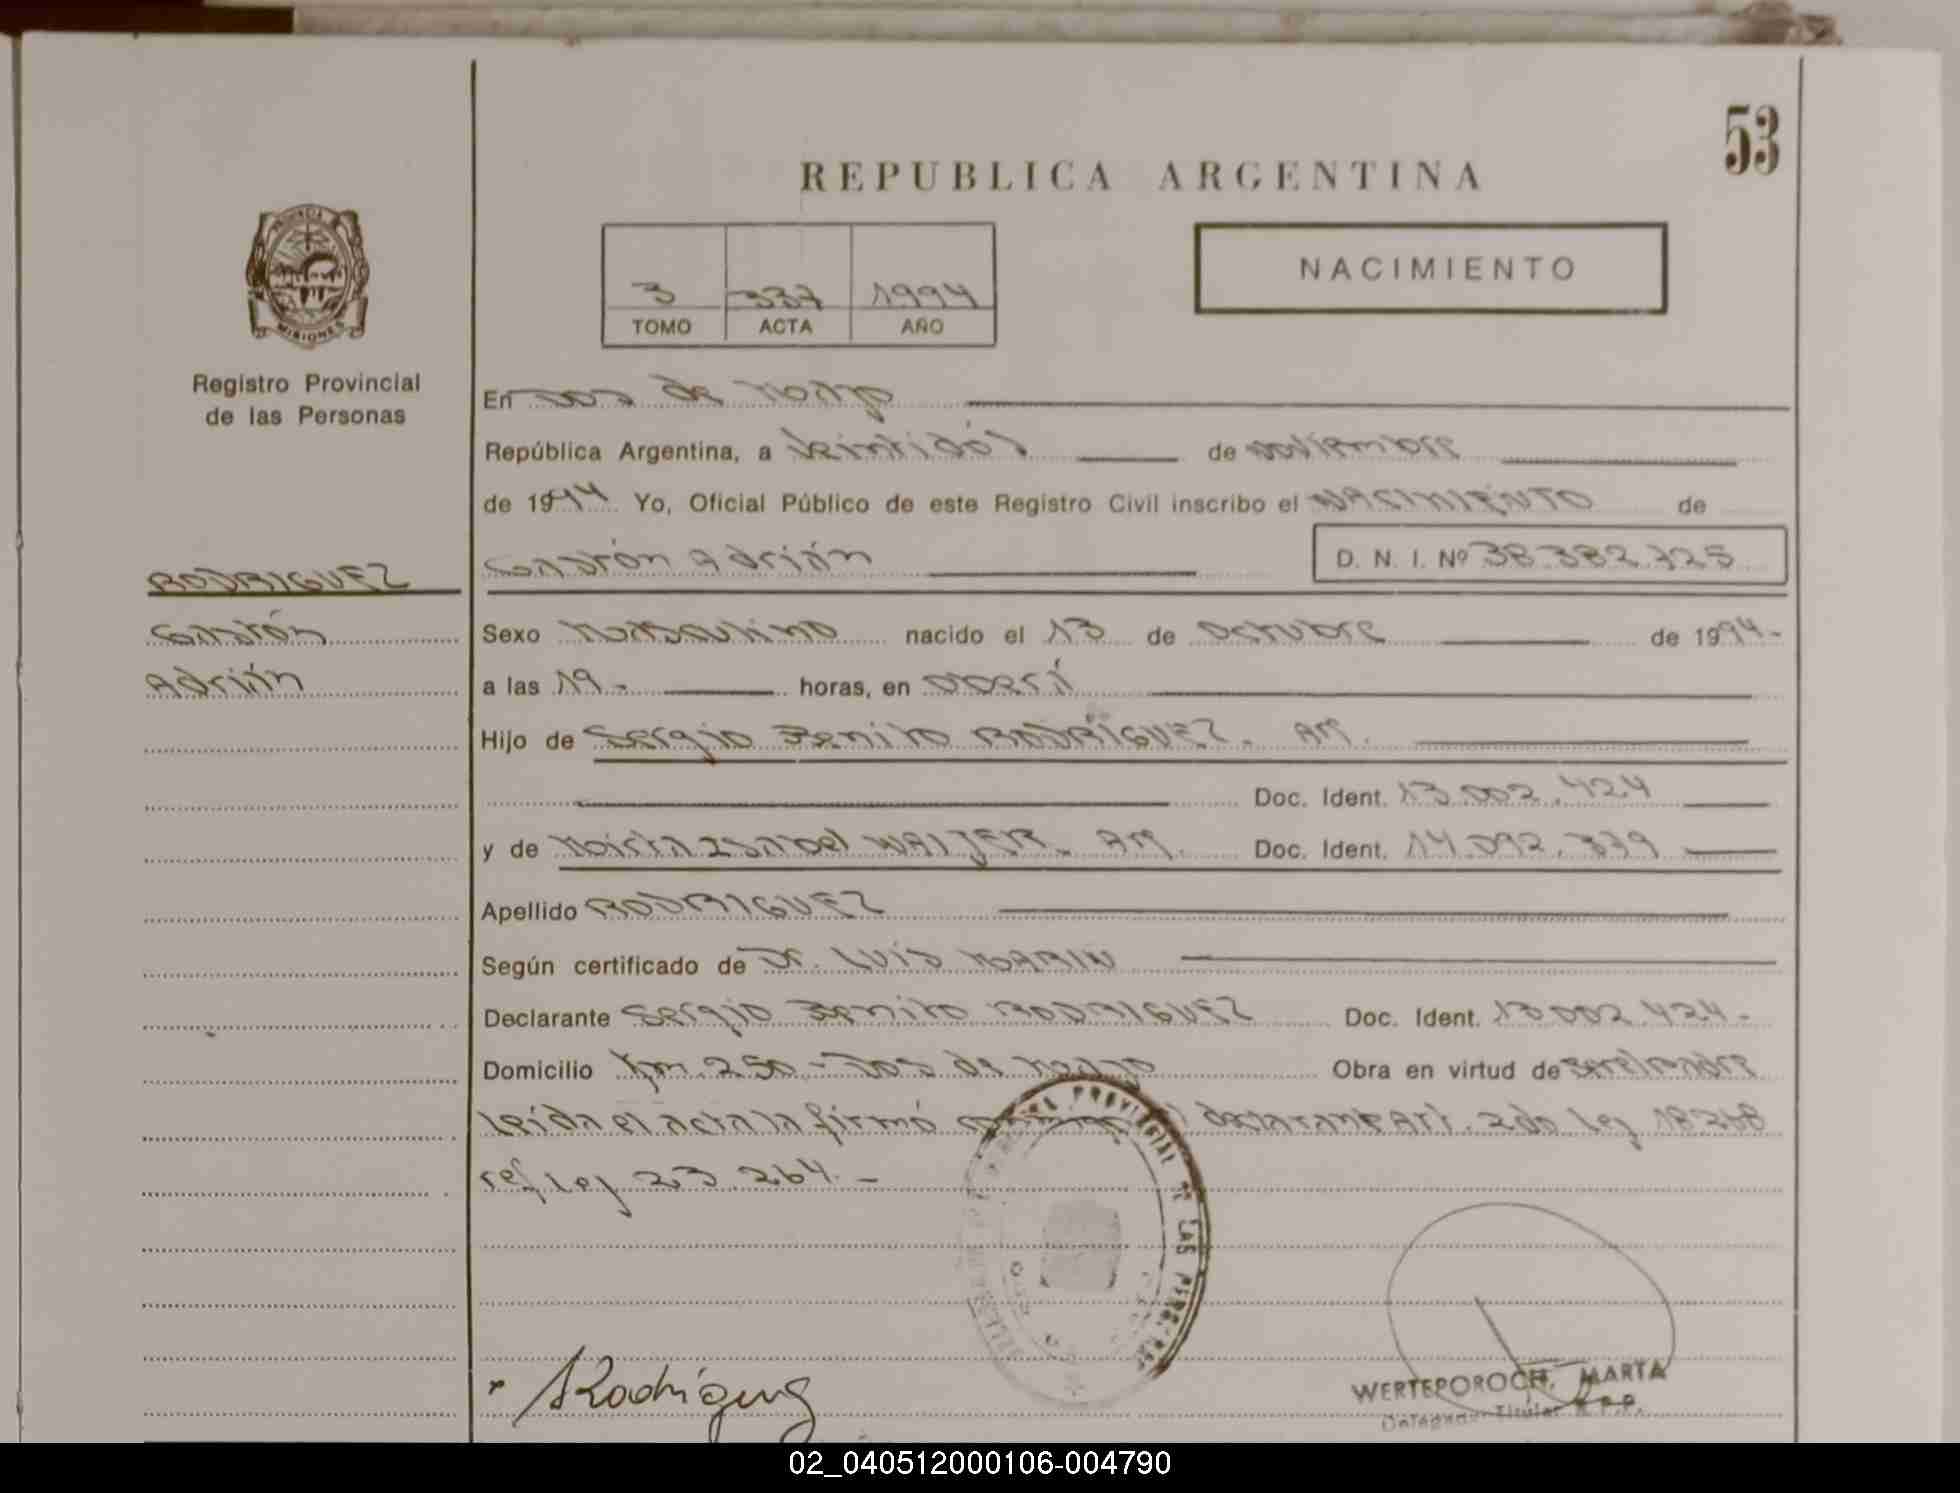 53
REPUBLICA ARGENTINA
PROVINCIA
MISIONES
Registro Provincial
de las Personas
3 337 1994
TOMO ACTA AÑO
NACIMIENTO
En Dos de Mayo
República Argentina, a Veintidós de noviembre
de 1994 Yo, Oficial Público de este Registro Civil inscribo el NACIMIENTO de
Gastón Adrián D. N. I. Nº 38.382.725
RODRIGUEZ
Gastón
Adrián
Sexo Masculino nacido el 13 de octubre de 1994-
a las 19.- horas, en Oberá
Hijo de Sergio Benito RODRIGUEZ. AM.
Doc. Ident. 13.002.424
y de Isabel AM. Doc. Ident. 14.092.339
Apellido RODRIGUEZ
Según certificado de Dr. Luis MARIN
Declarante Sergio Benito RODRIGUEZ Doc. Ident. 13.002.424-
Domicilio Km. 250.- Dos de Mayo Obra en virtud de
leída el acta la firmó declarante Art. 2do Ley 18248
ref Ley 23.264.-
PROVINCIAL DE LAS PERSONAS
Rodriguez
WERTEPOROCH, MARTA
Delegada Titular R.P.P.
02_040512000106-004790